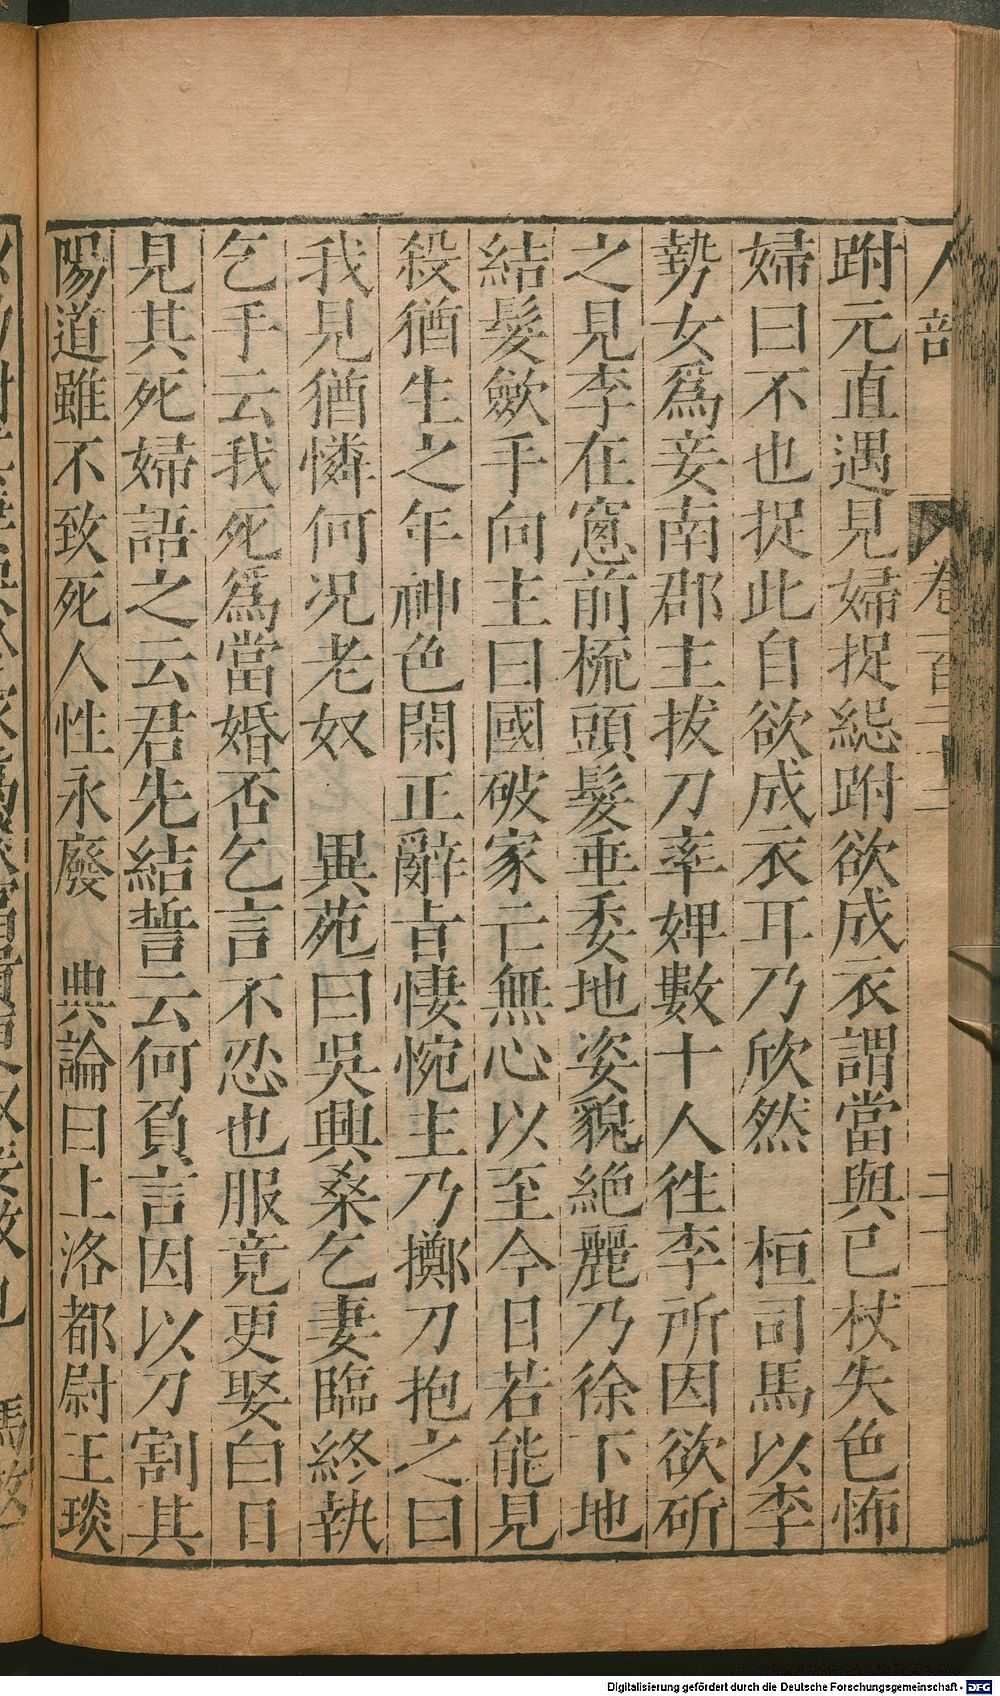 人部
卷一百
跗元直遇見婦捉緦跗欲成衣謂當與已杖失色怖
婦曰不也捉此自欲成衣耳乃欣然　桓司馬以李
勢女爲妾南郡主拔刀率婢數十人徃李所因欲斫
之見李在窻前梳頭髮垂委地姿貌絶麗乃徐下地
結髮歛手向主曰國破家亡無心以至今日若能見
殺猶生之年神色閑正辭㫖悽惋主乃擲刀抱之曰
我見猶憐何况老奴　異苑曰吳興桑乞妻臨終執
乞手云我死爲當婚否乞言不忍也服竟更娶白日
見其死婦語之云君先結誓云何負言因以刀割其
陽道雖不致死人性永廢　典論曰上洛都尉王琰
Digitalisierung gefördert durch die Deutsche Forschungsgemeinschaft - DFG